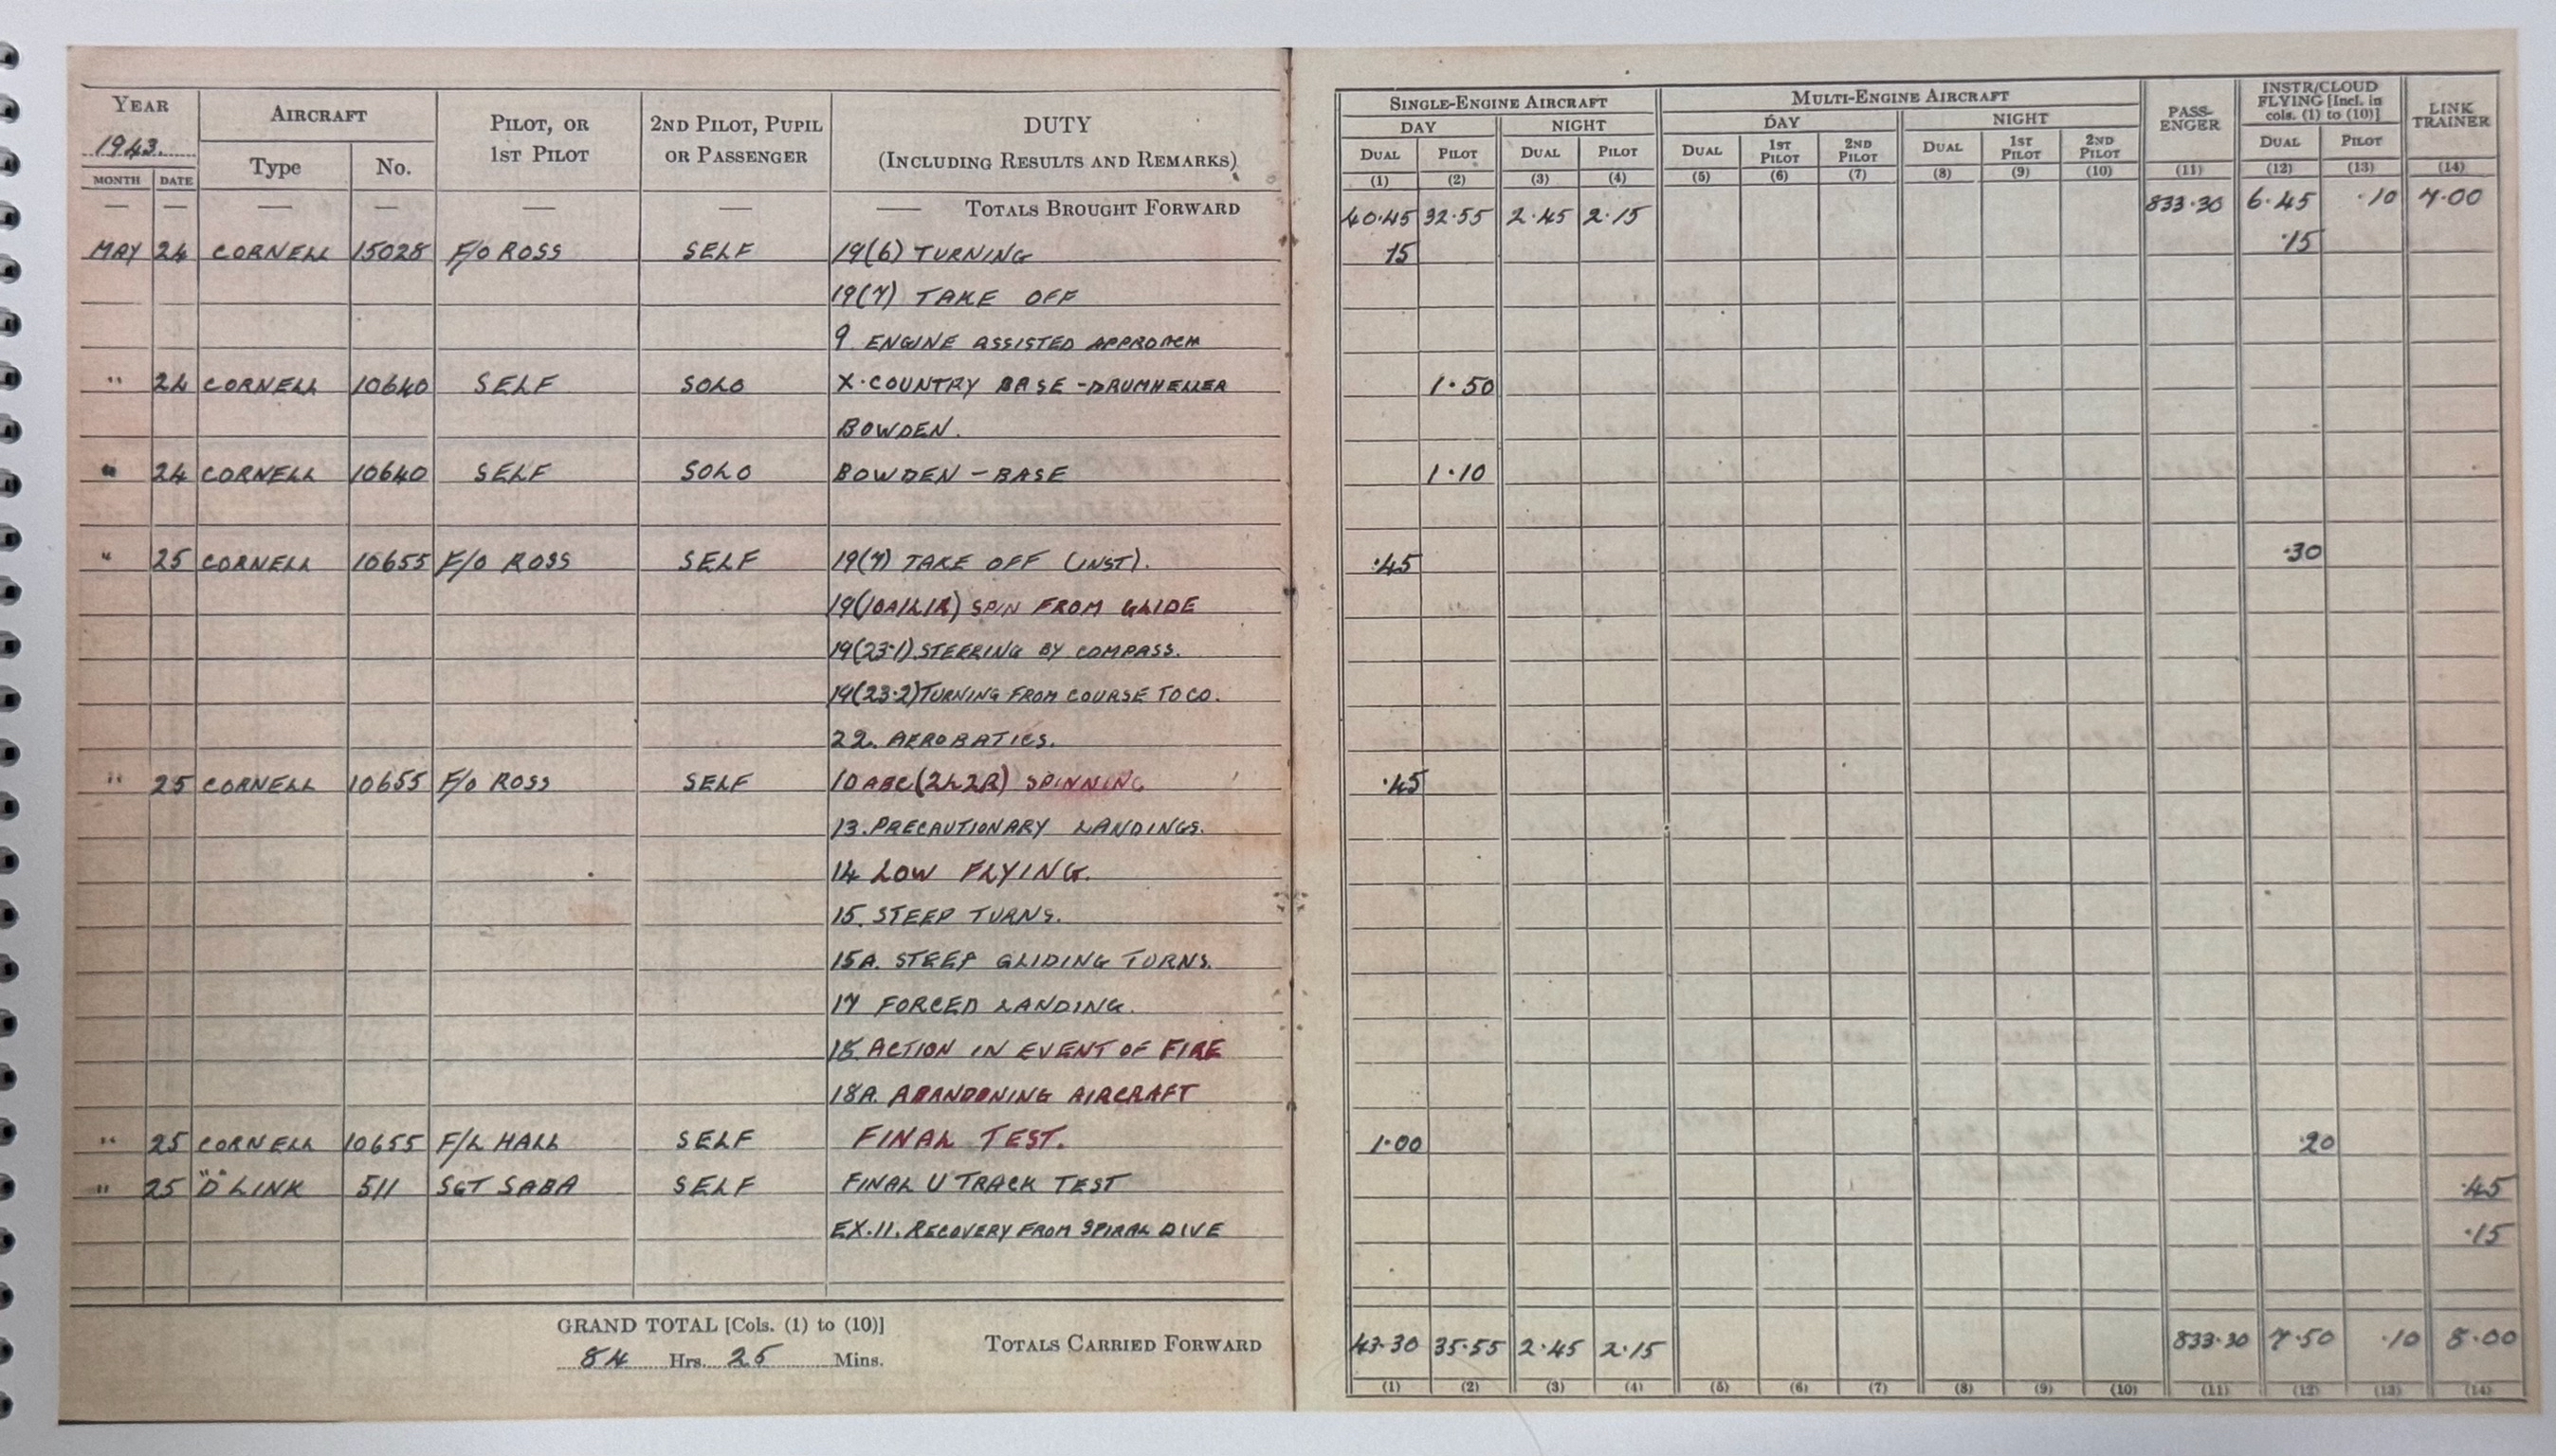 YEAR AIRCRAFT PILOT, OR 1ST PILOT 2ND PILOT, PUPIL OR PASSENGER DUTY (INCLUDING RESULTS AND REMARKS)
1943. Type No.
MONTH DATE
— — — — — — TOTALS BROUGHT FORWARD
MAY 24 CORNELL 15028 F/O ROSS SELF 19(6) TURNING
19(7) TAKE OFF
9 ENGINE ASSISTED APPROACH
" 24 CORNELL 10640 SELF SOLO X-COUNTRY BASE - DRUMHELLER
BOWDEN.
" 24 CORNELL 10640 SELF SOLO BOWDEN - BASE
" 25 CORNELL 10655 F/O ROSS SELF 19(7) TAKE OFF (INST).
19(10A1L1R) SPIN FROM GLIDE
19(23·1) STEERING BY COMPASS.
19(23·2) TURNING FROM COURSE TO CO.
22. AEROBATICS.
" 25 CORNELL 10655 F/O ROSS SELF 10 ABC (2L2R) SPINNING
13. PRECAUTIONARY LANDINGS.
14 LOW FLYING.
15. STEEP TURNS.
15A. STEEP GLIDING TURNS.
17 FORCED LANDING.
18 ACTION IN EVENT OF FIRE
18A. ABANDONING AIRCRAFT
" 25 CORNELL 10655 F/L HALL SELF FINAL TEST.
" 25 "D" LINK 511 SGT SABA SELF FINAL U TRACK TEST
EX.11. RECOVERY FROM SPIRAL DIVE
GRAND TOTAL [Cols. (1) to (10)]
84 Hrs. 25 Mins.
TOTALS CARRIED FORWARD
SINGLE-ENGINE AIRCRAFT MULTI-ENGINE AIRCRAFT PASSENGER INSTR/CLOUD FLYING [Incl. in cols. (1) to (10)] LINK TRAINER
DAY NIGHT DAY NIGHT
DUAL PILOT DUAL PILOT DUAL 1ST PILOT 2ND PILOT DUAL 1ST PILOT 2ND PILOT DUAL PILOT
(1) (2) (3) (4) (5) (6) (7) (8) (9) (10) (11) (12) (13) (14)
40·45 32·55 2·45 2·15 833·30 6·45 ·10 7·00
15 ·15
1·50
1·10
·45 ·30
·45
1·00 ·20
·45
·15
43·30 35·55 2·45 2·15 833·30 7·50 ·10 8·00
(1) (2) (3) (4) (5) (6) (7) (8) (9) (10) (11) (12) (13) (14)